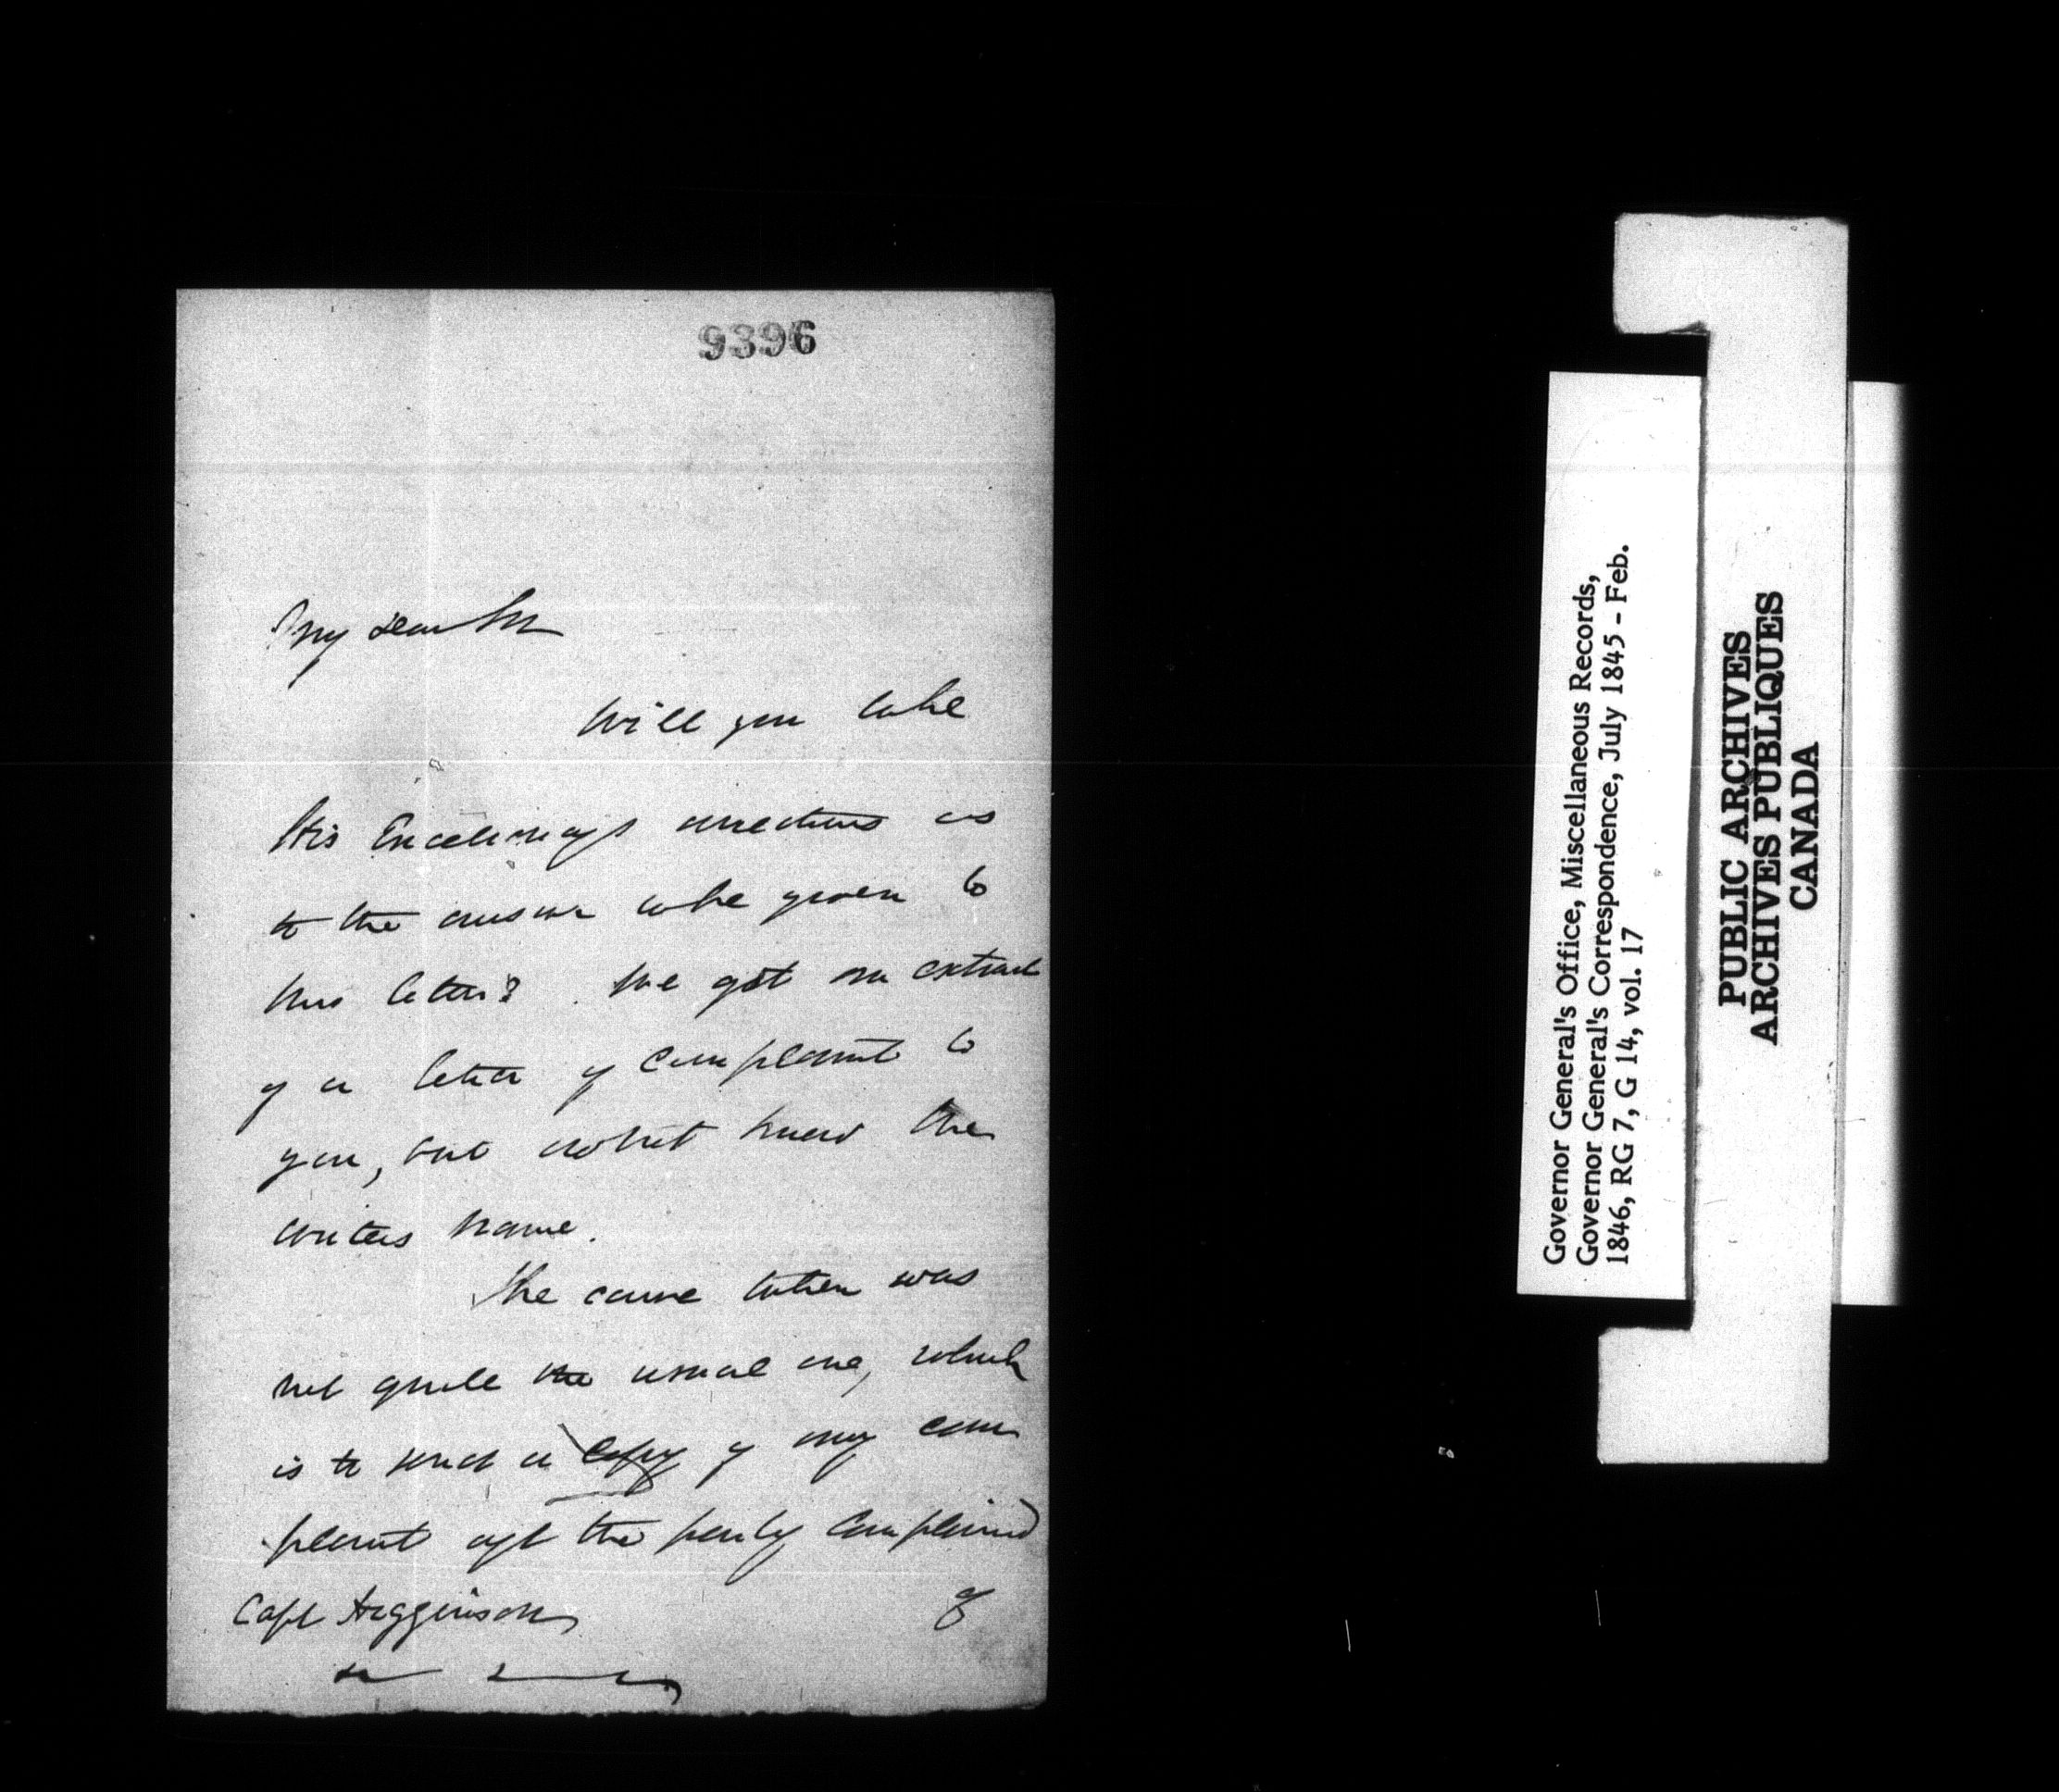 9396
My dear Sir
Will you take
His Excellency's directions as
to the answer to be given to
this letter? We got an extract
of a letter of complaint to
you, but do not know the
writers name.
The course taken was
not quite the usual one, which
is to send a copy of any com
plaint agt the party complained
of
Capt Higginson
Governor General's Office, Miscellaneous Records,
Governor General's Correspondence, July 1845 - Feb.
1846, RG 7, G 14, vol. 17
PUBLIC ARCHIVES
ARCHIVES PUBLIQUES
CANADA